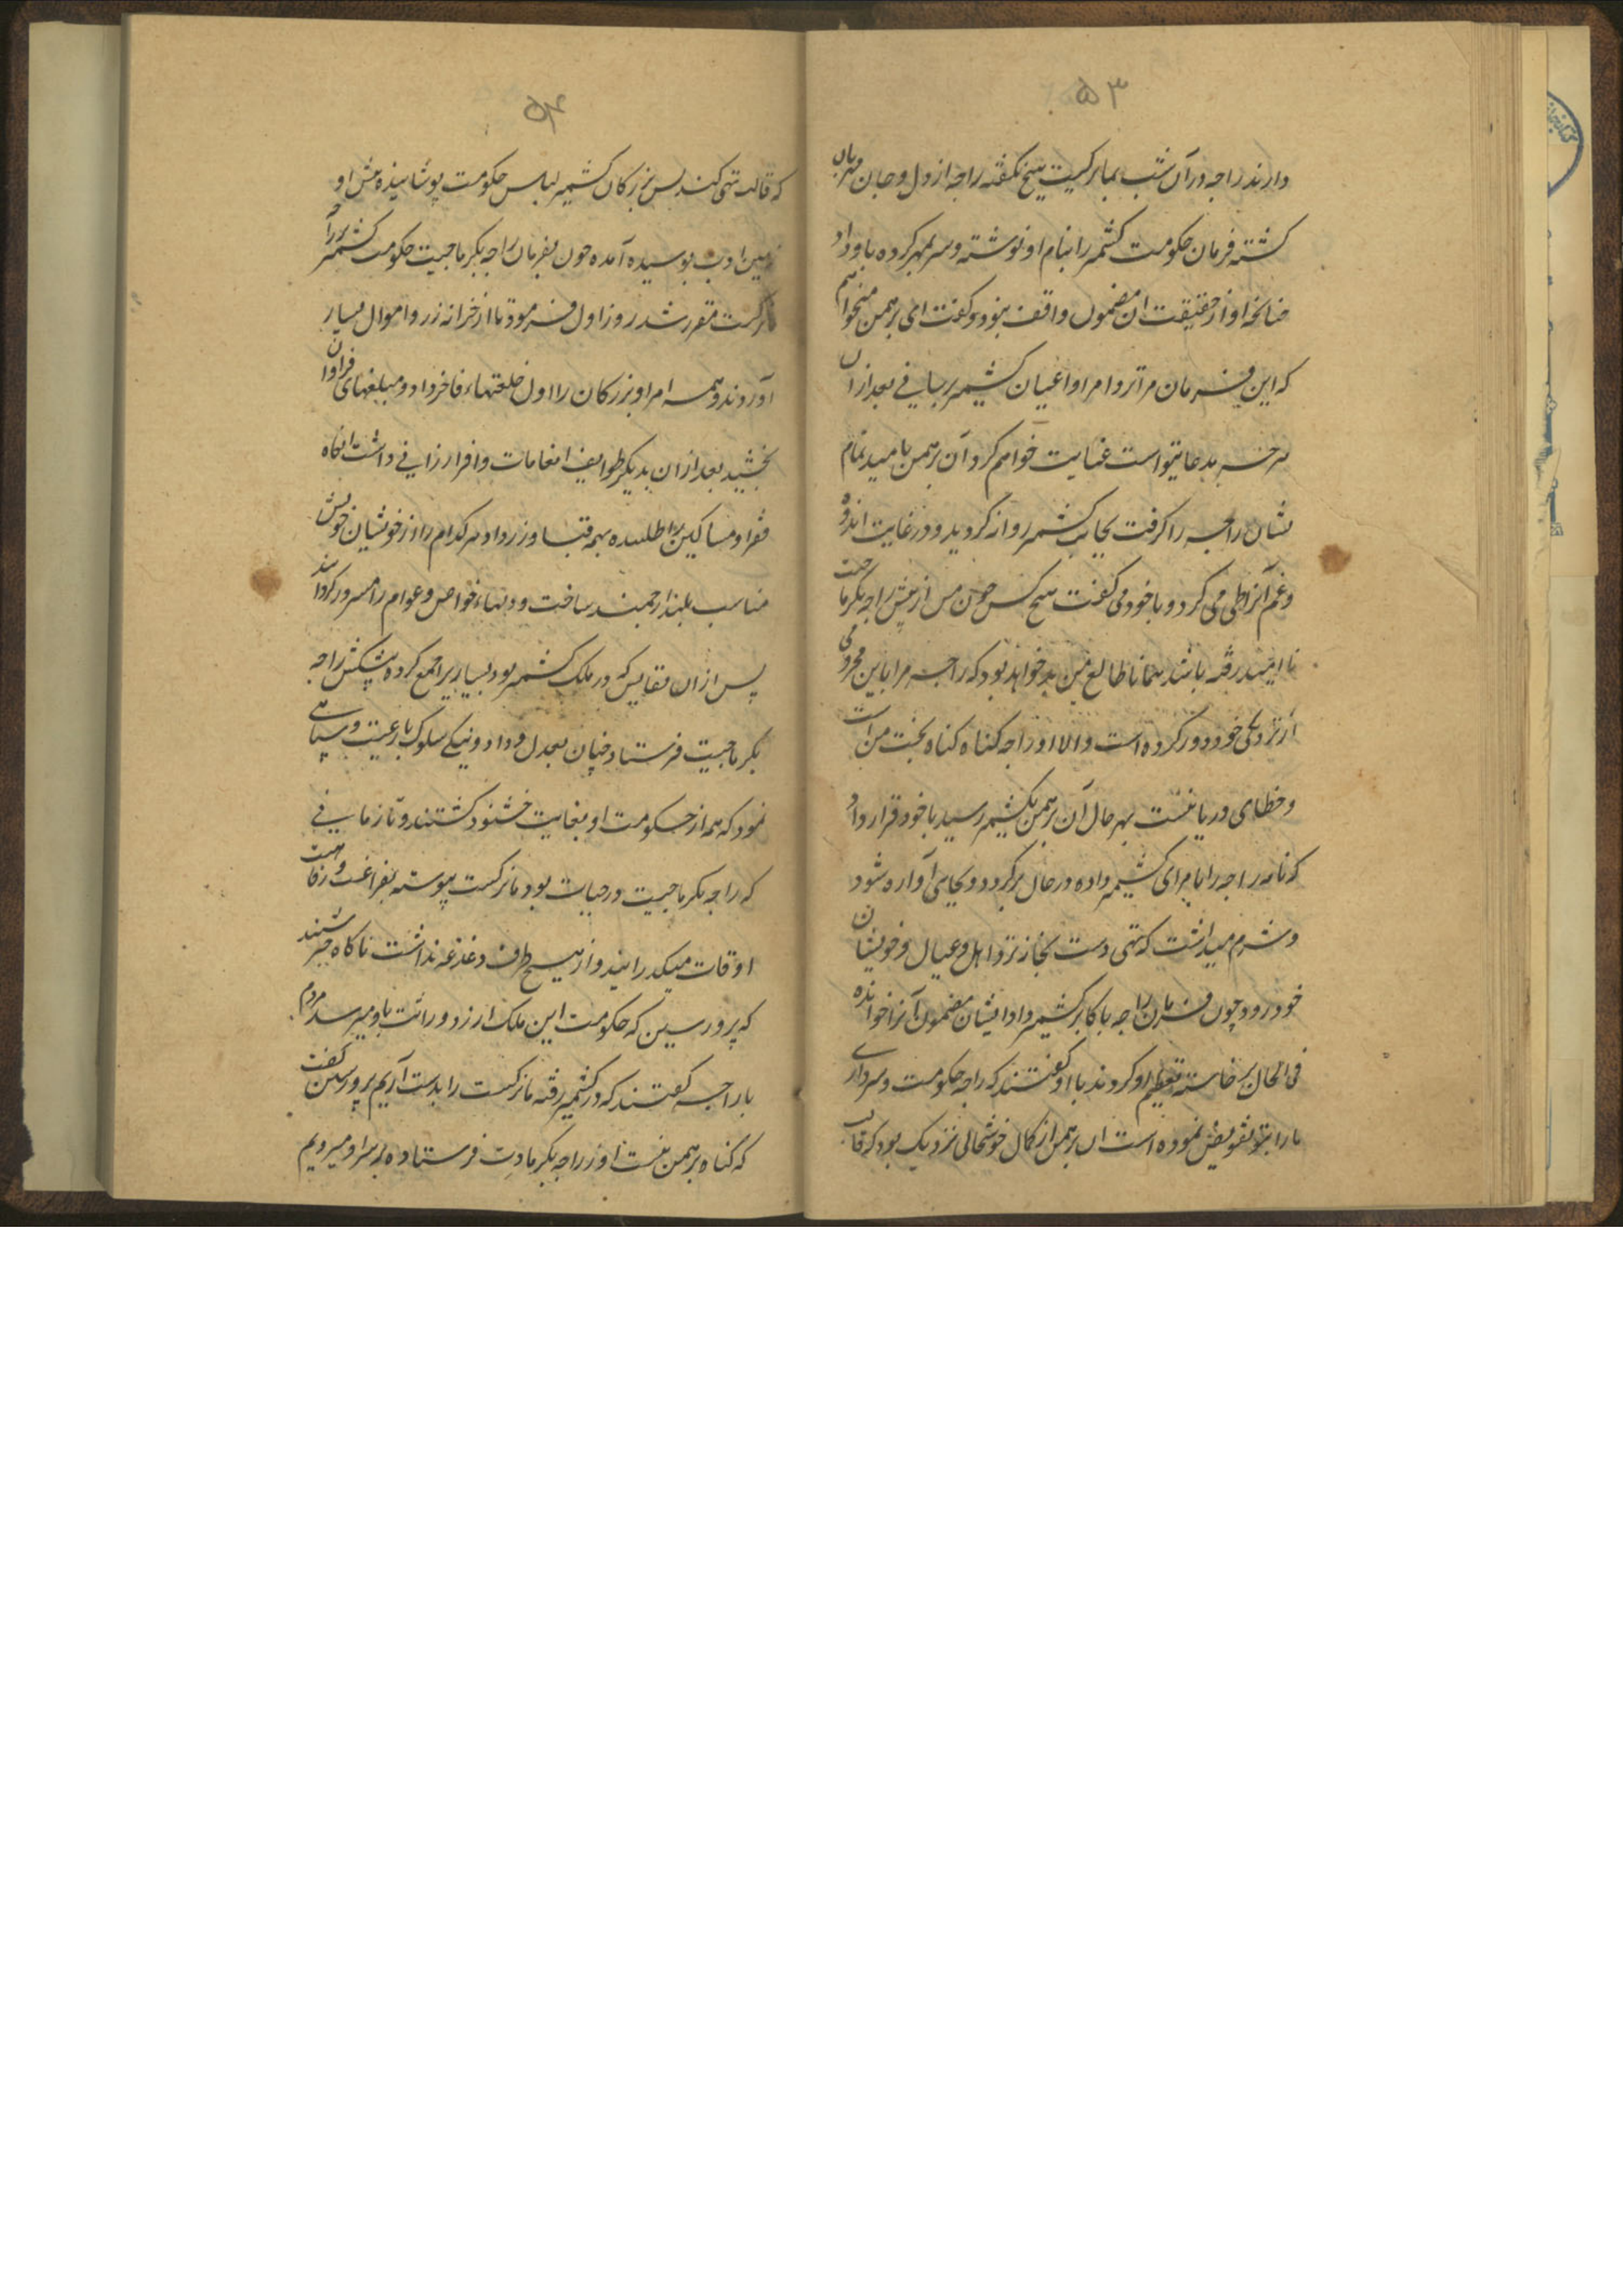 ۵۳
دارند راجه در آن شب بماترکیت هیچ نگفته راجه از دل و جان مهربان
کشته فرمان حکومت کشمیر را بنام او نوشته و سر بمهر کرده باو داد
چنانچه او از حقیقت ان مضمون واقف نبود و کفت ای برهمن میخواهم
که این فرمان مرا نزد امرا و اعیان کشیمر رسانی بعد از ان
هر چه مدعا تتواست عنایت خواهم کرد آن برهمن نامید تمام
نشان راجه را کرفت بجانب کشمیر روانه کردید و در غایت اندوه
و غم آنراطی می کرد و با خود می کفت هیچ کس چون من از پیش راجه بکرماجیت
نا امید رفته باشد همانا طالع من بد خواهد بود که راجه مرا باین محرومی
از نزدیکی خود دور کرده است والا او را چه کناه کناه بخت من است
و خطای دریا نیست بهر حال آن برهمن بکشیمر رسید با خود قرار داد
که نامه راجه را بامرای کشیمر داده در حال برکردد و بجایی آواره شود
و شرم میداشت که تهی دست بخانه نزد اهل و عیال و خویشان
خود رود چون فرمان راجه باکابر کشیمر داد ایشان مضمون آنرا خوانده
فی الحال برخاسته تعظیم او کردند با او کفتند که راجه حکومت و سرداری
ما را بتو تفویض نموده است ان برهمن از کمال خوشحالی نزدیک بود که قالب
۵۴
که قالب تهی کند پس بزرکان کشیمر لباس حکومت پوشانیده پیش او
زمین ادب بوسیده آمده چون بفرمان راجه بکرماجیت حکومت کشمیر را
ماترکت مقرر شد روز اول فرمود تا از خزانه زر و اموال بسیار
آوردند و همه امرا و بزرکان را اول خلعتهاء فاخر داد و مبلغهای فراوان
بخشید بعد از ان بدیکر طوایف انعامات وافر ارزانی داشت انکاه
فقرا و مساکین را طلبیده بهمه قبا و زر داد هر کدام را از خویشان خویش
مناسب بلند ارجمند ساخت و دلهاء خواص و عوام را مسرور کردانید
پس از ان نفایس که در ملک کشمیر بود بسیار را جمع کرده پیشکش راجه
بکرماجیت فرستاد چنان بعدل و داد و نیکی سلوک با رعیت و سپاهی
نمود که همه از حکومت او بغایت خشنود کشتند و تا زمانی
که راجه بکرماجیت در حیات بود ماترکست پیوسته بفراغت و رفاهیت
اوقات میکذرانید و از هیچ طرف دغدغه نداشت ناکاه خبر شنید
که پرورسین که حکومت این ملک از زد وراثت باو میرسد مردم
با راجه کفتند که در کشمیر رفته ماترکست را بدست آریم پرورسین کفت
که کناه برهمن نیست او را راجه بکرمادت فرستاده بر سر او میرویم